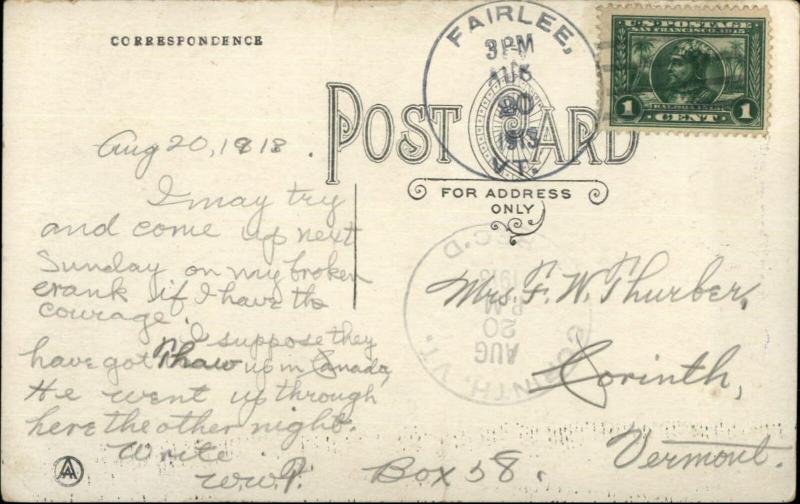 CORRESPONDENCE
FAIRLEE,
3PM
AUG
20
1913
VT.
U.S. POSTAGE
SAN FRANCISCO, 1915
1 CENT 1
POST CARD
FOR ADDRESS
ONLY
Aug 20, 1913.
I may try
and come up next
Sunday on my broken
crank if I have the
courage.
I suppose they
have got Thaw up in Canada,
He went up through
here the other night.
Write
W.W.P.
REC'D
1913
P.M.
20
AUG
CORINTH, VT.
Mrs. F. W. Thurber,
Corinth,
Vermont.
Box 58.
AA